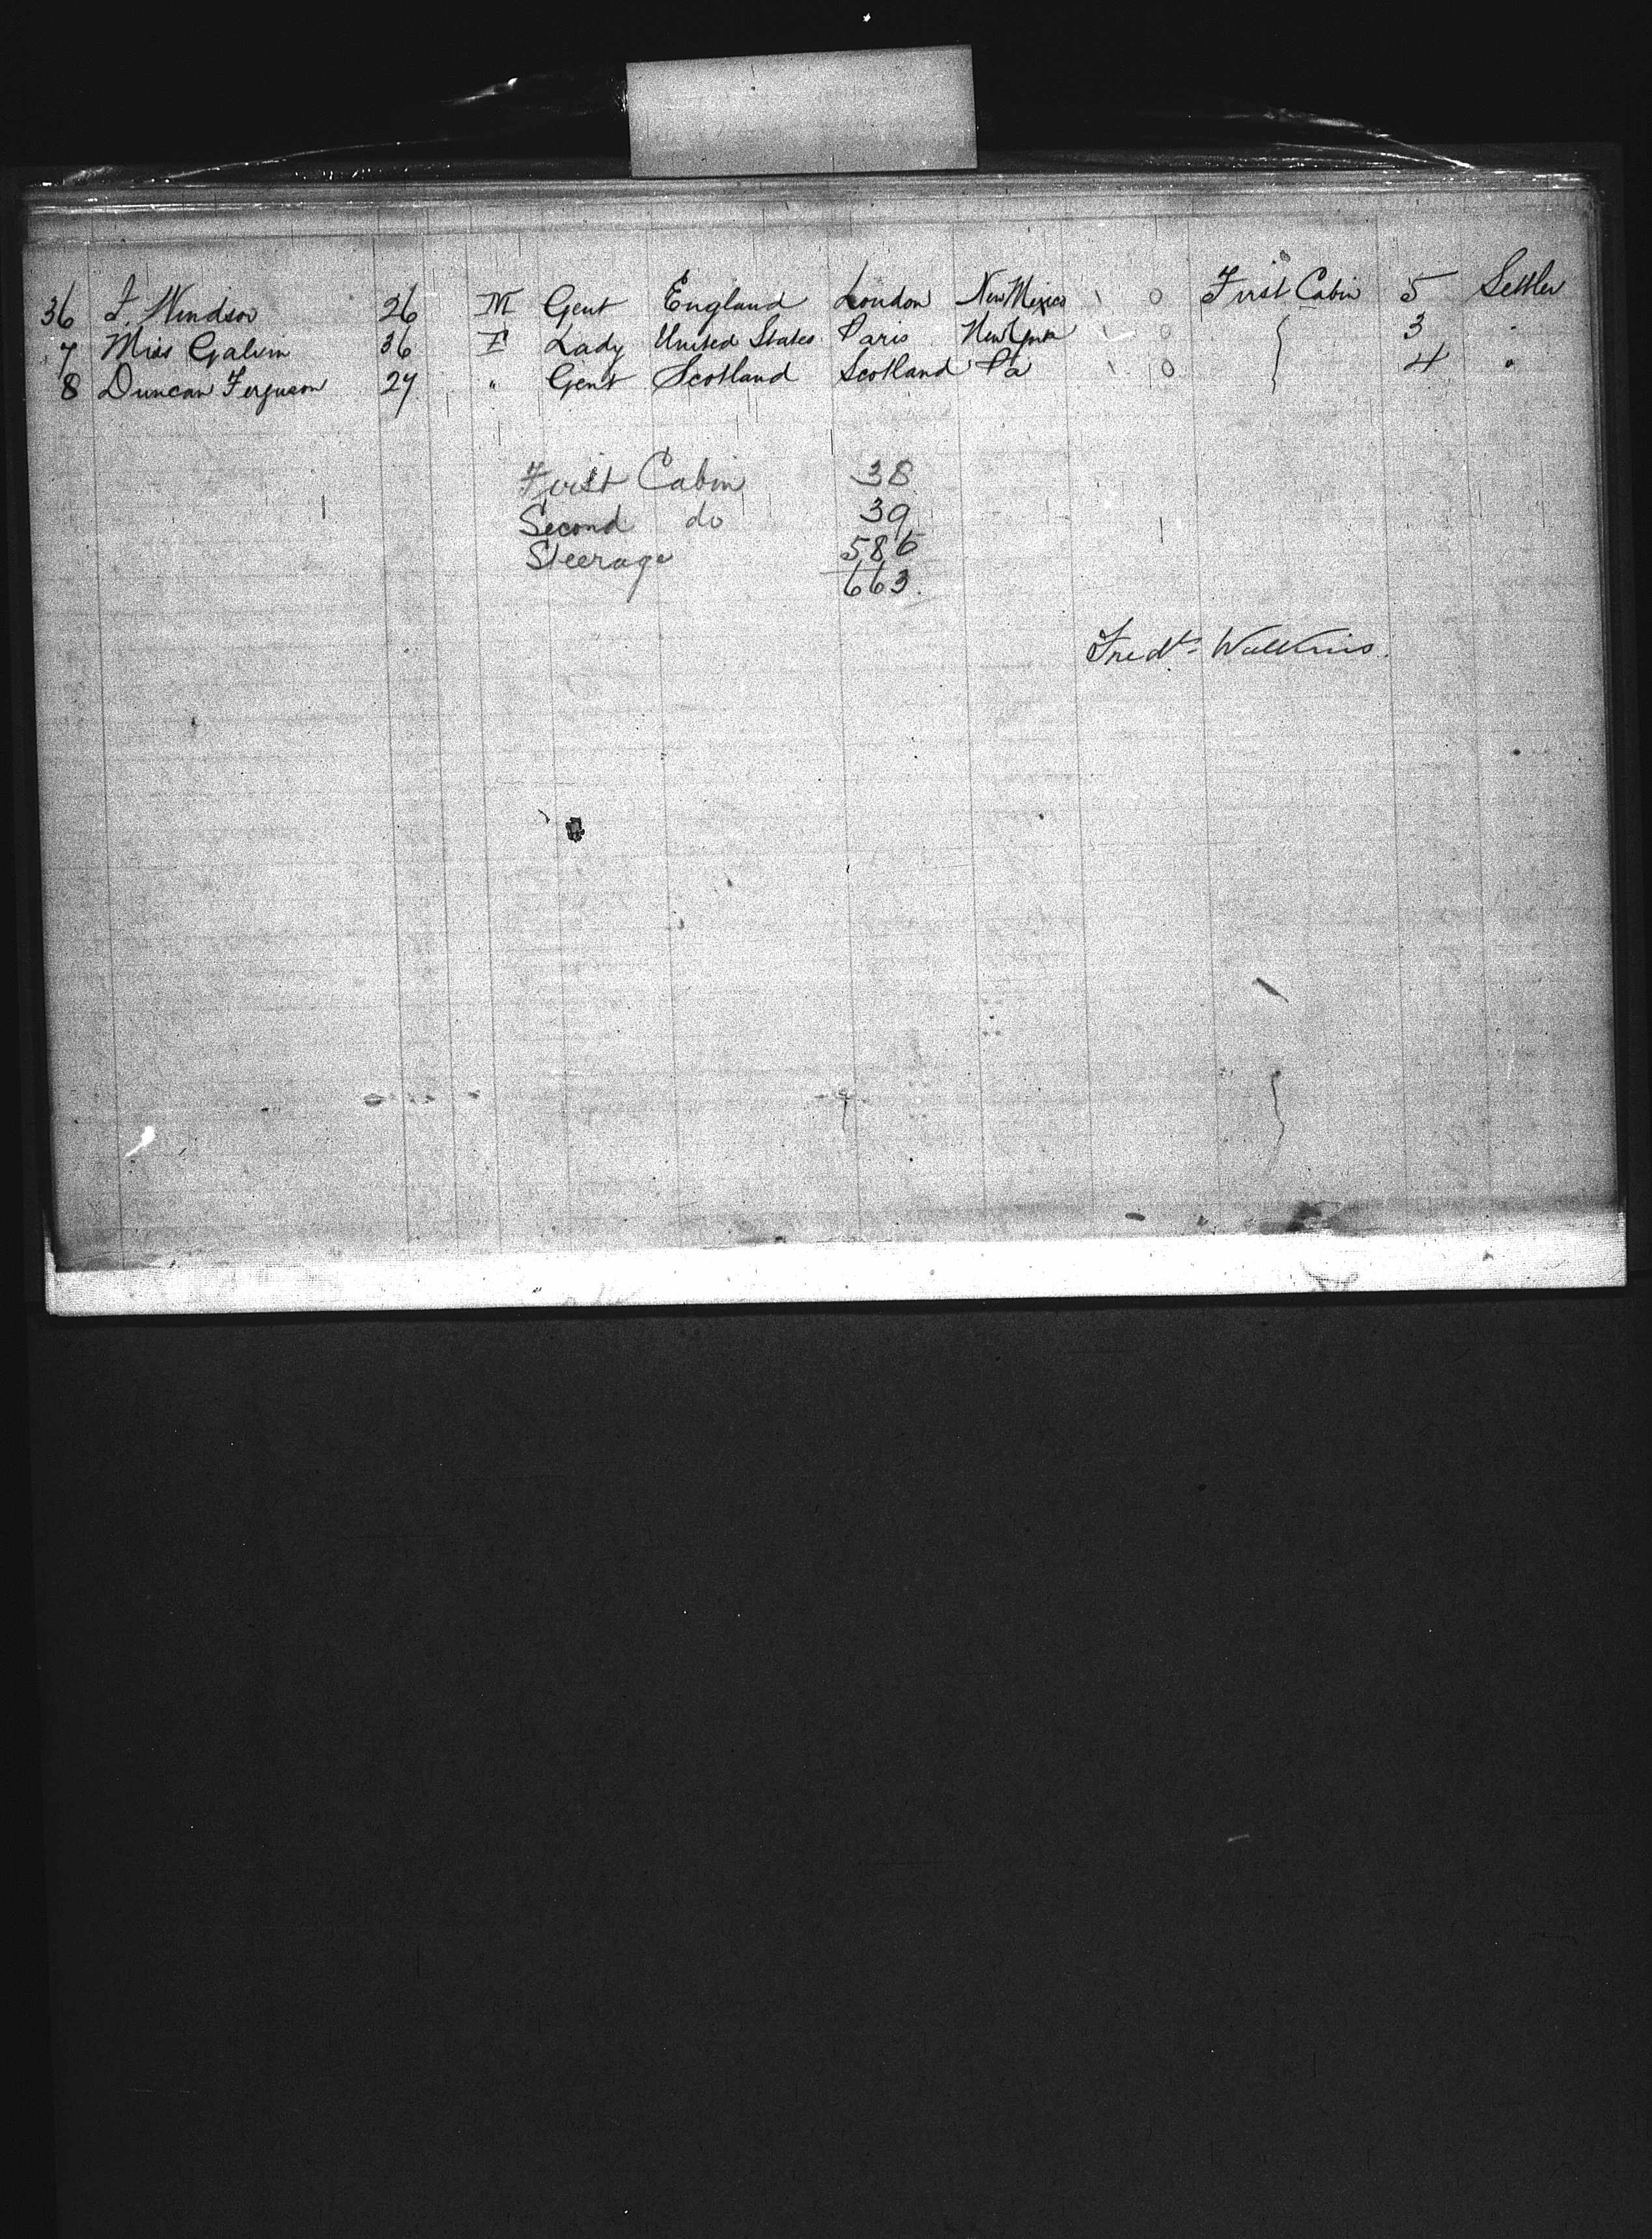 36 F. Windsor 26 M Gent England London New Mexico \ 0 First Cabin 5 Settler
7 Miss Galvin 36 F Lady United States Paris New York \ 0 3 "
8 Duncan Ferguson 27 " Gent Scotland Scotland Pa \ 0 4 "
First Cabin 38
Second do 39
Steerage 586
663.
Fredk Watkins.